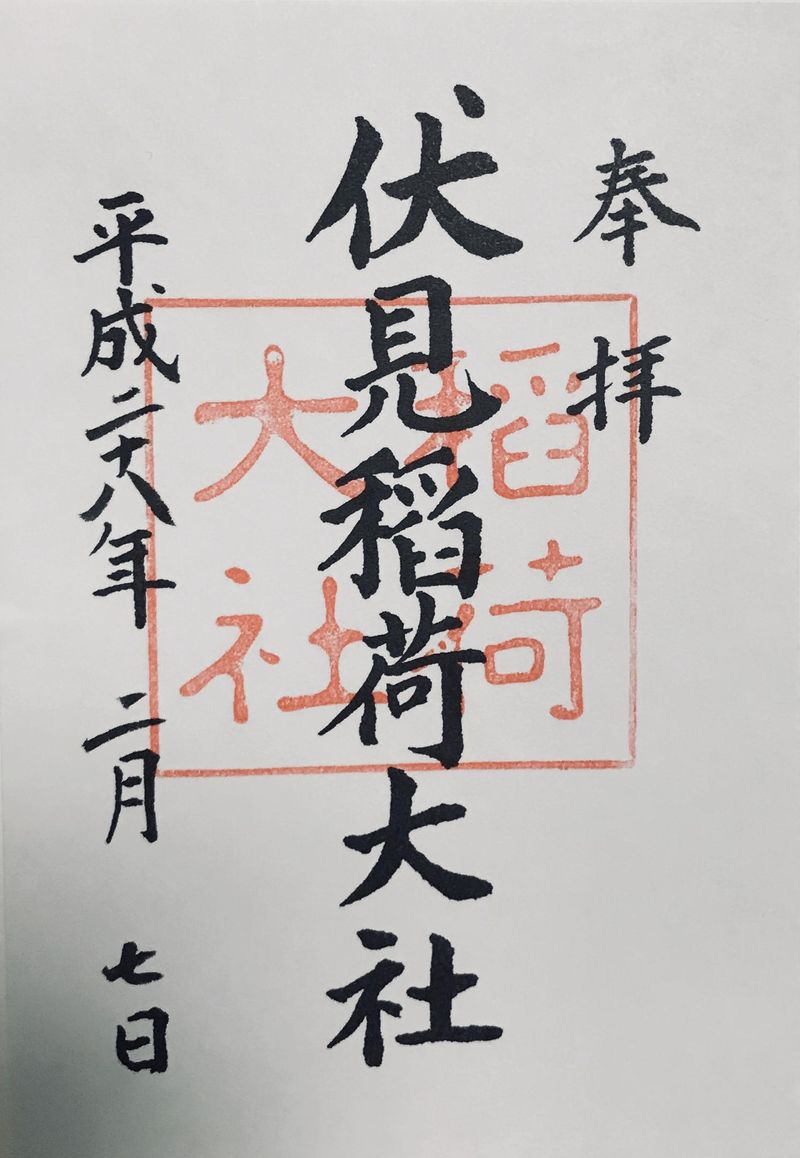 奉拝
伏見稲荷大社
稲荷
大社
平成二十八年 二月 七日